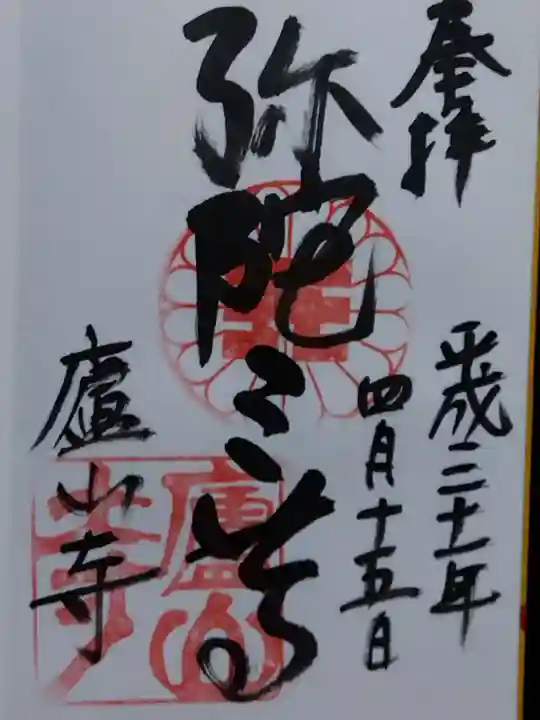 奉拝
平成二十一年
四月十五日
弥陀三尊
廬山寺
廬山寺